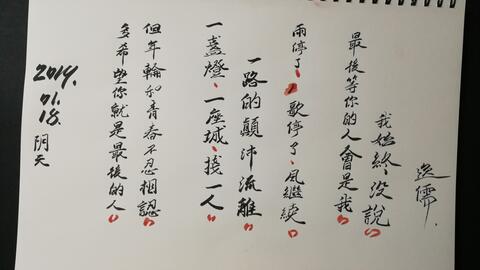 逸儒.
我始終沒說
最後等你的人會是我
雨停了、歌停了、風繼續
一路的顛沛流離
一盞燈、一座城、找一人
但年輪和青春不忍相認
多希望你就是最後的人
2019.
01.
18.
阴天